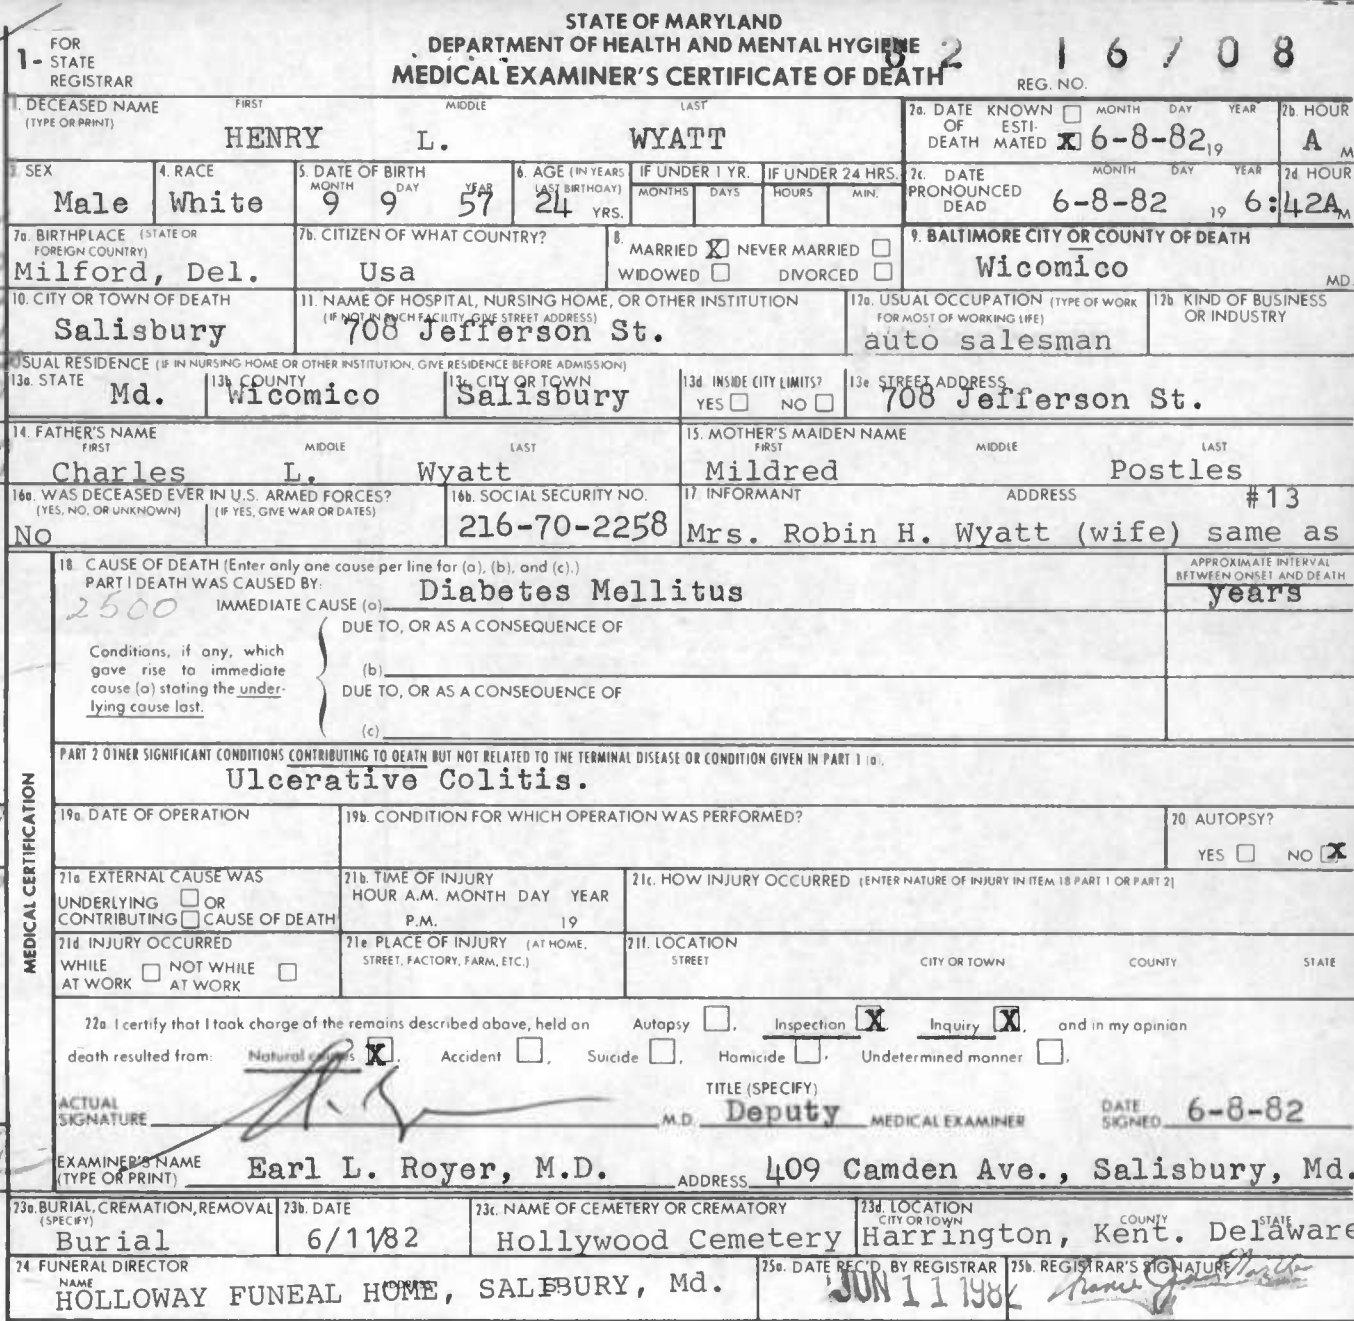 STATE OF MARYLAND
DEPARTMENT OF HEALTH AND MENTAL HYGIENE
MEDICAL EXAMINER'S CERTIFICATE OF DEATH
1- FOR STATE REGISTRAR
82 16708
REG. NO.
1. DECEASED NAME (TYPE OR PRINT) FIRST MIDDLE LAST
HENRY L. WYATT
2a. DATE OF DEATH KNOWN ☐ ESTIMATED ☒ MONTH DAY YEAR
6-8-82 19
2b. HOUR
A M
3. SEX
Male
4. RACE
White
5. DATE OF BIRTH MONTH DAY YEAR
9 9 57
6. AGE (IN YEARS LAST BIRTHDAY)
24 YRS.
IF UNDER 1 YR. MONTHS DAYS
IF UNDER 24 HRS. HOURS MIN.
2c. DATE PRONOUNCED DEAD MONTH DAY YEAR
6-8-82 19
2d HOUR
6:42A M
7a. BIRTHPLACE (STATE OR FOREIGN COUNTRY)
Milford, Del.
7b. CITIZEN OF WHAT COUNTRY?
Usa
8. MARRIED ☒ NEVER MARRIED ☐
WIDOWED ☐ DIVORCED ☐
9. BALTIMORE CITY OR COUNTY OF DEATH
Wicomico MD.
10. CITY OR TOWN OF DEATH
Salisbury
11. NAME OF HOSPITAL, NURSING HOME, OR OTHER INSTITUTION
(IF NOT IN SUCH FACILITY, GIVE STREET ADDRESS)
708 Jefferson St.
12a. USUAL OCCUPATION (TYPE OF WORK FOR MOST OF WORKING LIFE)
auto salesman
12b. KIND OF BUSINESS OR INDUSTRY
USUAL RESIDENCE (IF IN NURSING HOME OR OTHER INSTITUTION, GIVE RESIDENCE BEFORE ADMISSION)
13a. STATE
Md.
13b. COUNTY
Wicomico
13c. CITY OR TOWN
Salisbury
13d. INSIDE CITY LIMITS?
YES ☐ NO ☐
13e STREET ADDRESS
708 Jefferson St.
14. FATHER'S NAME FIRST MIDDLE LAST
Charles L. Wyatt
15. MOTHER'S MAIDEN NAME FIRST MIDDLE LAST
Mildred Postles
16a. WAS DECEASED EVER IN U.S. ARMED FORCES?
(YES, NO, OR UNKNOWN) (IF YES, GIVE WAR OR DATES)
No
16b. SOCIAL SECURITY NO.
216-70-2258
17 INFORMANT ADDRESS #13
Mrs. Robin H. Wyatt (wife) same as
MEDICAL CERTIFICATION
18. CAUSE OF DEATH (Enter only one cause per line for (a), (b), and (c).)
PART I DEATH WAS CAUSED BY:
2500
IMMEDIATE CAUSE (a) Diabetes Mellitus
APPROXIMATE INTERVAL BETWEEN ONSET AND DEATH
years
Conditions, if any, which gave rise to immediate cause (a) stating the underlying cause last.
DUE TO, OR AS A CONSEQUENCE OF
(b)
DUE TO, OR AS A CONSEQUENCE OF
(c)
PART 2 OTHER SIGNIFICANT CONDITIONS CONTRIBUTING TO DEATH BUT NOT RELATED TO THE TERMINAL DISEASE OR CONDITION GIVEN IN PART 1 (a).
Ulcerative Colitis.
19a. DATE OF OPERATION
19b. CONDITION FOR WHICH OPERATION WAS PERFORMED?
20 AUTOPSY?
YES ☐ NO ☒
21a EXTERNAL CAUSE WAS
UNDERLYING ☐ OR
CONTRIBUTING ☐ CAUSE OF DEATH
21b. TIME OF INJURY
HOUR A.M. MONTH DAY YEAR
P.M. 19
21c. HOW INJURY OCCURRED (ENTER NATURE OF INJURY IN ITEM 18 PART 1 OR PART 2)
21d INJURY OCCURRED
WHILE AT WORK ☐ NOT WHILE AT WORK ☐
21e PLACE OF INJURY (AT HOME, STREET, FACTORY, FARM, ETC.)
21f. LOCATION
STREET CITY OR TOWN COUNTY STATE
22a I certify that I took charge of the remains described above, held an Autopsy ☐, Inspection ☒ Inquiry ☒, and in my opinion
death resulted from: Natural causes ☒, Accident ☐, Suicide ☐, Homicide ☐, Undetermined manner ☐.
ACTUAL SIGNATURE M.D.
TITLE (SPECIFY)
Deputy MEDICAL EXAMINER
DATE SIGNED 6-8-82
EXAMINER'S NAME (TYPE OR PRINT) Earl L. Royer, M.D. ADDRESS 409 Camden Ave., Salisbury, Md.
23a. BURIAL, CREMATION, REMOVAL (SPECIFY)
Burial
23b. DATE
6/11/82
23c. NAME OF CEMETERY OR CREMATORY
Hollywood Cemetery
23d. LOCATION CITY OR TOWN COUNTY STATE
Harrington, Kent. Delaware
24 FUNERAL DIRECTOR
NAME ADDRESS
HOLLOWAY FUNEAL HOME, SALISBURY, Md.
25a. DATE REC'D. BY REGISTRAR
JUN 11 1982
25b. REGISTRAR'S SIGNATURE